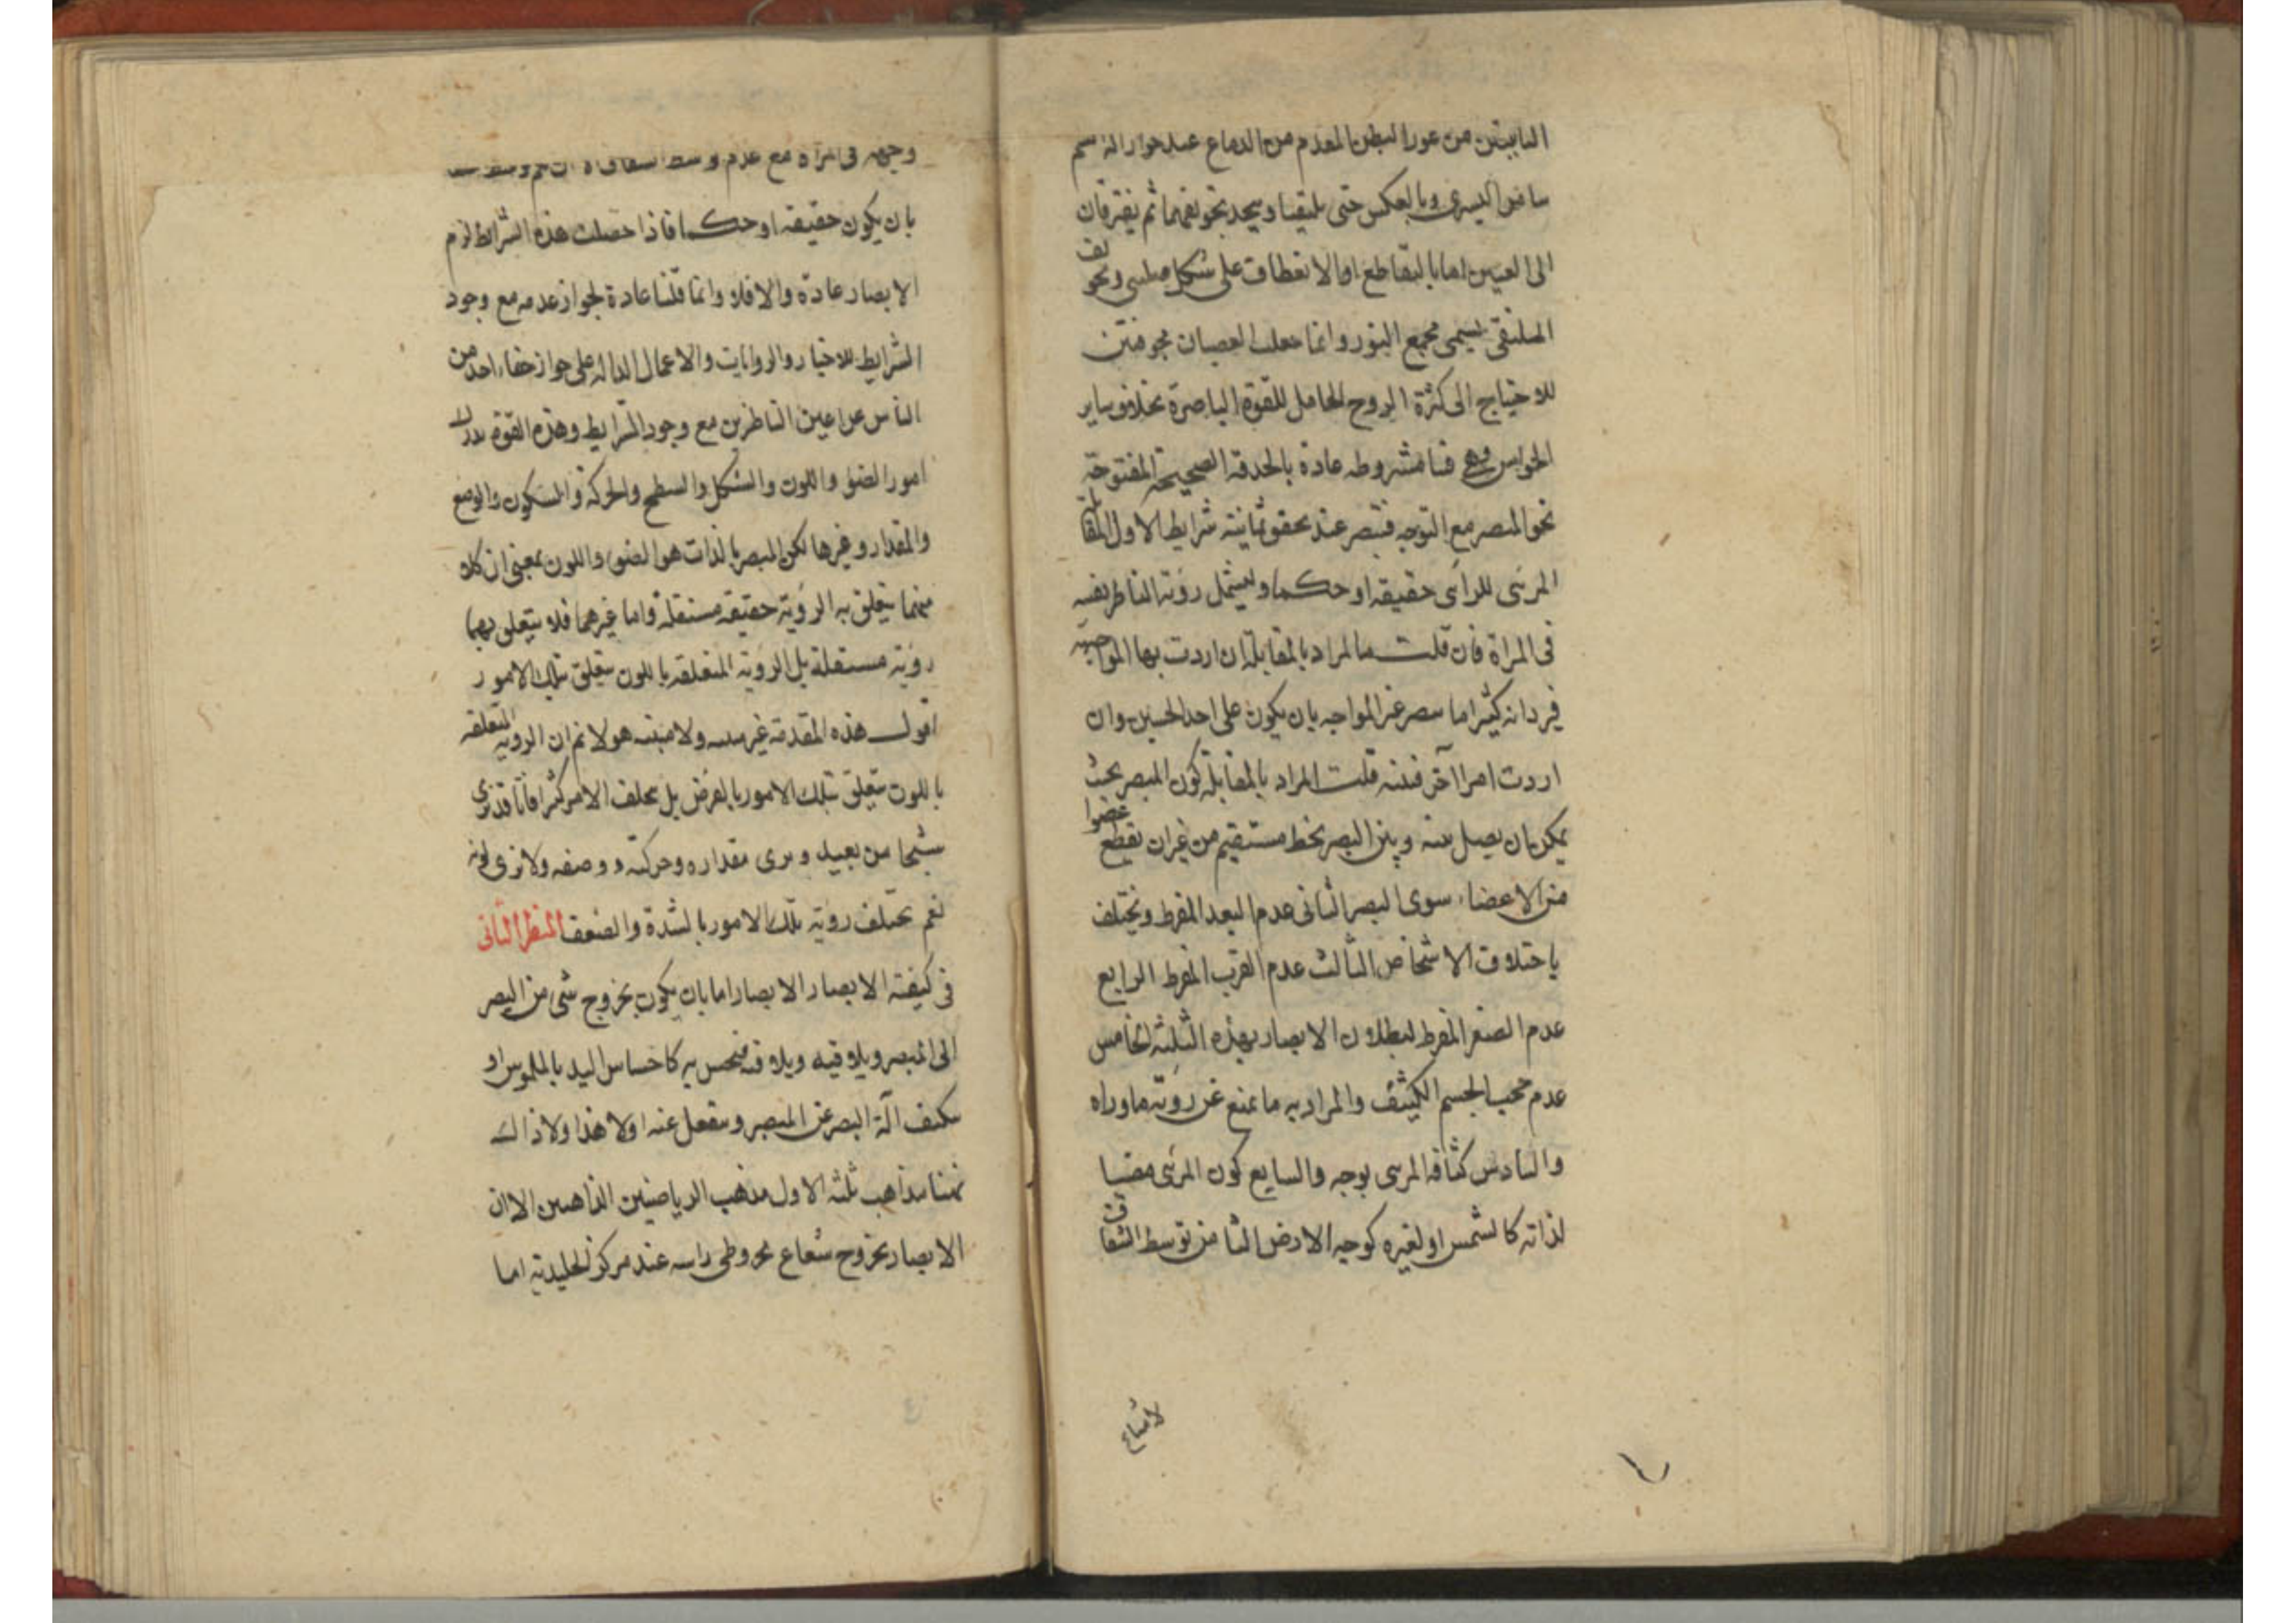 النابتين من غور البطن المقدم من الدماغ عند جوار
اليسرى وبالعكس حتى يلتقيا ويتحد تجويفهما ثم يفترقان
الى العينين اما بالتقاطع او الانعطاف على شكل صليبى وتجويف
الملتقى يسمى مجمع النور وانما جعلت العصبتان مجوفتين
للاحتياج الى كثرة الروح الحامل للقوة الباصرة بخلاف ساير
الحواس وهى فينا مشروطه عادة بالحدقة الصحيحة المفتوحة
نحو المبصر مع التوجه فتبصر عند تحقق ثمانية شرايط الاول المقابلة
المرئى للرائى حقيقة او حكما وليشمل روية الناظر نفسه
فى المراة فان قلت ما المراد بالمقابلة ان اردت بها المواجهة
فيرد انه كثيرا ما نبصر غير المواجه بان يكون على احد الجنبين وان
اردت امرا آخر فبينه قلت المراد بالمقابلة كون المبصر بحيث
يمكن ان يصل بينه وبين البصر بخط مستقيم من غير ان يقطع عضوا
من الاعضاء سوى البصر الثانى عدم البعد المفرط ويختلف
باختلاف الاشخاص الثالث عدم القرب المفرط الرابع
عدم الصغر المفرط لبطلان الابصار بهذه الثلثة الخامس
عدم حجب الجسم الكثيف والمراد به ما يمنع عن روية ما وراه
والسادس كثافة المرئى بوجه والسابع كون المرئى مضيا
لذاته كالشمس او لغيره كوجه الارض الثامن توسط الشفاف
وجهه فى المراة مع عدم
بان يكون حقيقة او حكما فاذا حصلت هذه الشرايط لزم
الابصار عادة والا فلا وانما قلنا عادة لجواز عدمه مع وجود
الشرايط للاخبار والروايات والاعمال الدالة على جواز خفاء احد من
الناس عن اعين الناظرين مع وجود الشرايط وهذه القوة تدرك
امور الضوء واللون والشكل والسطح والحركة والسكون والوضع
والمقدار وغيرها لكن المبصر بالذات هو الضوء واللون بمعنى ان كلا
منهما يتعلق به الروية حقيقة مستقلة واما غيرهما فلا يتعلق بهما
روية مستقلة بل الروية المتعلقة باللون يتعلق بتلك الامور
اقول هذه المقدمة غير بينة ولا مبينة هو لا نم ان الروية المتعلقة
باللون يتعلق بتلك الامور بالعرض بل يخلف الامر كثيرا فانا قد نرى
شبحا من بعيد ونرى مقداره وحركته ووضعه ولا نرى لونه
نعم يختلف روية تلك الامور بالشدة والضعف المنظر الثانى
فى كيفية الابصار الابصار اما بان يكون بخروج شى من البصر
الى المبصر ويلاقيه ويلاقيه فيحس به كاحساس اليد بالملموس او
يتكيف آلة البصر عن المبصر وينفعل عنه اولا هذا ولا ذاك
فههنا مذاهب ثلثة الاول مذهب الرياضيين الذاهبين الا ان
الابصار بخروج شعاع مخروطى راسه عند مركز الجليدية اما